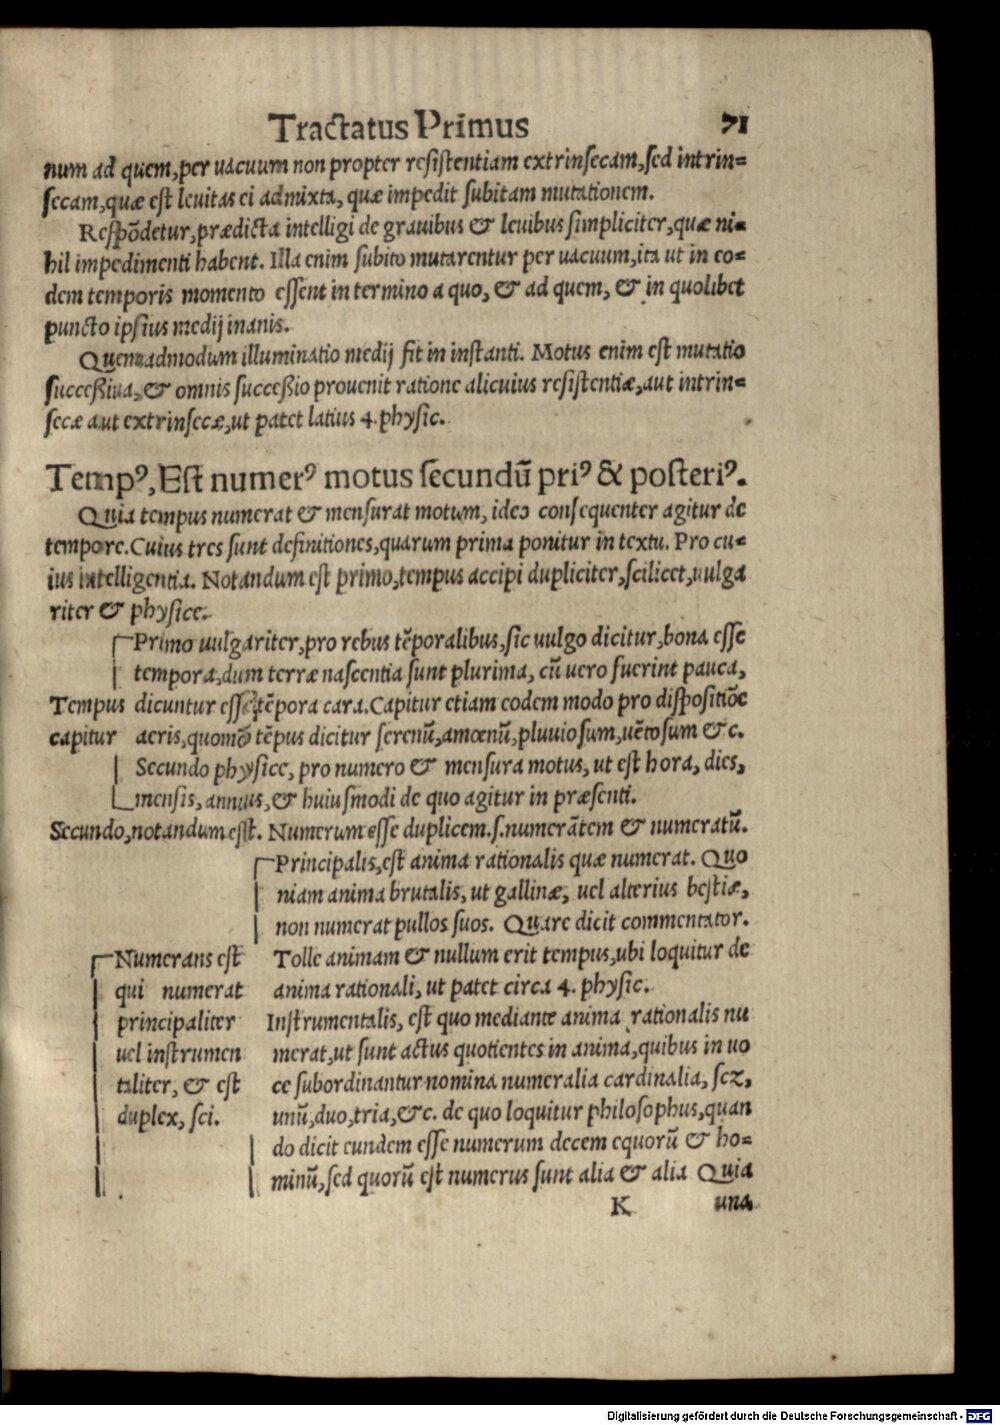 Tractatus Primus 71
num ad quem, per uacuum non propter resistentiam extrinsecam, sed intrin=
secam, quæ est leuitas ei admixta, quæ impedit subitam mutationem.
Respõdetur, prædicta intelligi de grauibus & leuibus simpliciter, quæ ni=
hil impedimenti habent. Illa enim subito mutarentur per uacuum, ita ut in eo=
dem temporis momento essent in termino a quo, & ad quem, & in quolibet
puncto ipsius medij inanis.
Quemadmodum illuminatio medij fit in instanti. Motus enim est mutatio
successiua, & omnis successio prouenit ratione alicuius resistentiæ, aut intrin=
secæ aut extrinsecæ, ut patet latius 4. physic.
Tempꝰ, Est numerꝰ motus secundũ priꝰ & posteriꝰ.
Quia tempus numerat & mensurat motum, ideo consequenter agitur de
tempore. Cuius tres sunt definitiones, quarum prima ponitur in textu. Pro cu=
ius intelligentia. Notandum est primo, tempus accipi dupliciter, scilicet, uulga
riter & physice.
Primo uulgariter, pro rebus tẽporalibus, sic uulgo dicitur, bona esse
tempora, dum terræ nascentia sunt plurima, cũ uero fuerint pauca,
Tempus dicuntur esse tẽpora cara. Capitur etiam eodem modo pro dispositiõe
capitur aeris, quomõ tẽpus dicitur serenũ, amœnũ, pluuiosum, uẽtosum &c.
Secundo physice, pro numero & mensura motus, ut est hora, dies,
mensis, annus, & huiusmodi de quo agitur in præsenti.
Secundo, notandum est. Numerum esse duplicem. s. numerãtem & numeratũ.
Principalis, est anima rationalis quæ numerat. Quo
niam anima brutalis, ut gallinæ, uel alterius bestiæ,
non numerat pullos suos. Quare dicit commentator.
Numerans est Tolle animam & nullum erit tempus, ubi loquitur de
qui numerat anima rationali, ut patet circa 4. physic.
principaliter Instrumentalis, est quo mediante anima rationalis nu
uel instrumen merat, ut sunt actus quotientes in anima, quibus in uo
taliter, & est ce subordinantur nomina numeralia cardinalia, scz,
duplex, sci. unũ, duo, tria, &c. de quo loquitur philosophus, quan
do dicit eundem esse numerum decem equorũ & ho=
minũ, sed quorũ est numerus sunt alia & alia Quia
K una
Digitalisierung gefördert durch die Deutsche Forschungsgemeinschaft - DFG